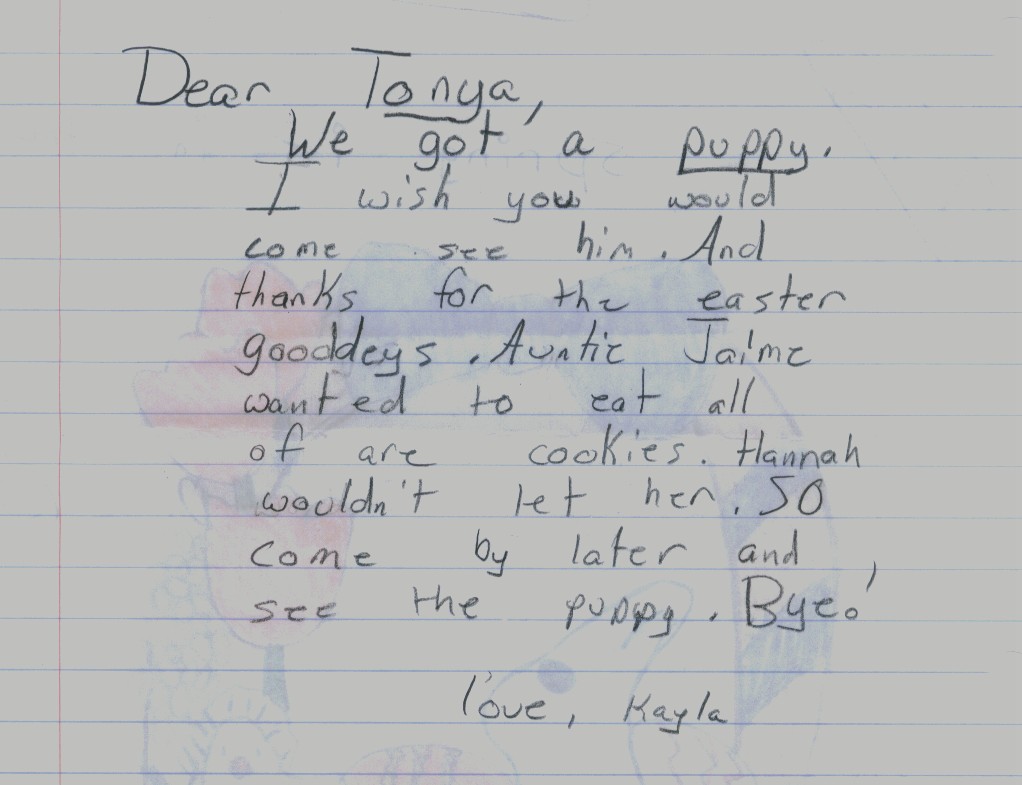 Dear Tonya,
We got a puppy.
I wish you would
come see him. And
thanks for the easter
gooddeys. Auntie Jaime
wanted to eat all
of are cookies. Hannah
wouldn't let her. SO
come by later and
see the puppy. Bye!
love, Kayla